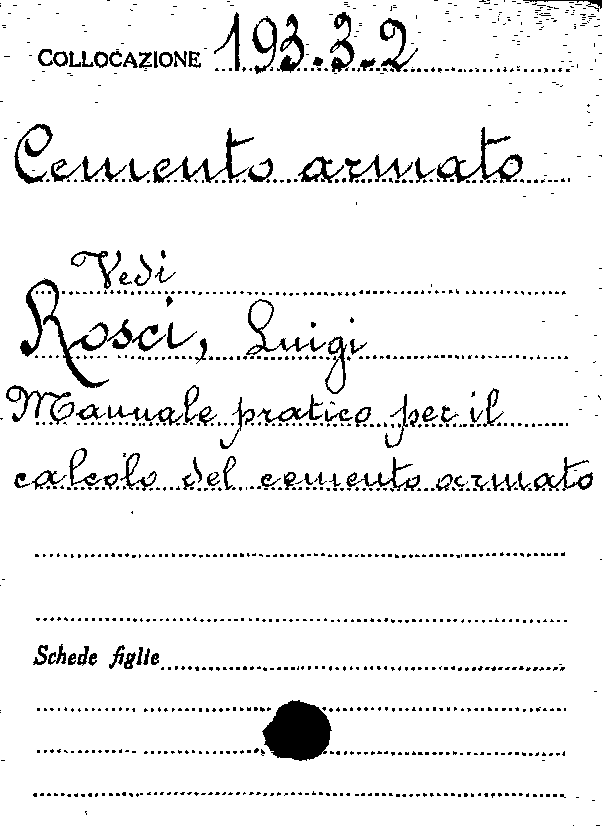 COLLOCAZIONE 193.3.2
Cemento armato
Vedi
Rosci, Luigi
Manuale pratico per il
calcolo del cemento armato
Schede figlie